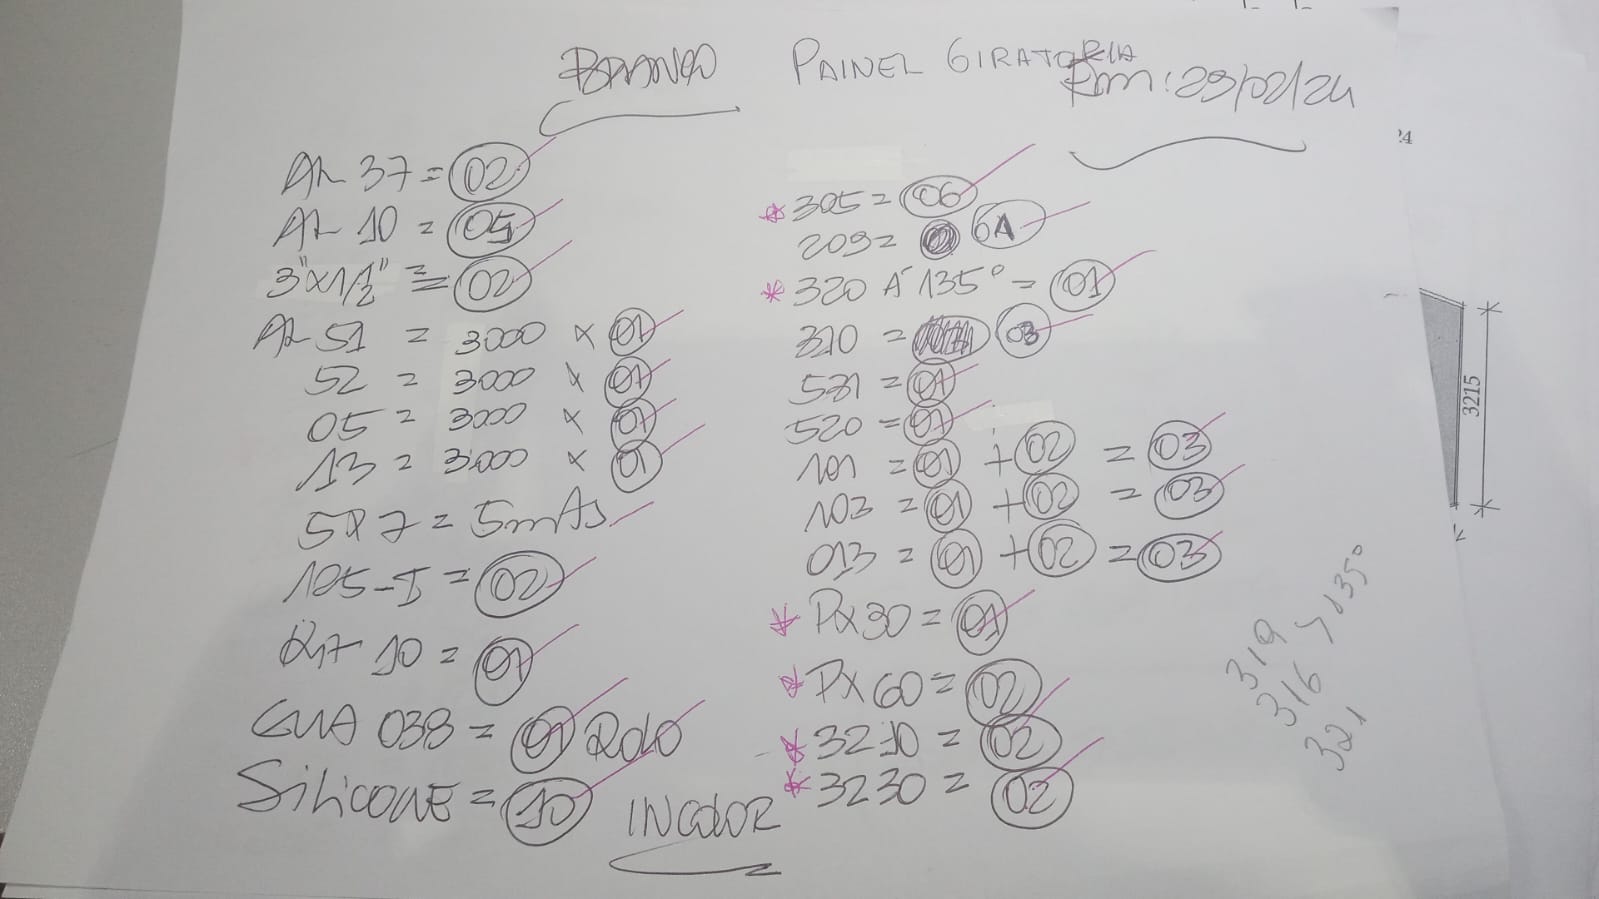 BRANCO
PAINEL GIRATORIA
Em: 29/02/24
AL 37 = 02
AL 10 = 05
3"x1/2" = 02
AL 51 = 3000 x 01
52 = 3000 x 01
05 = 3000 x 01
13 = 3000 x 01
5x7 = 5mts
105-I = 02
10 = 01
GUA 038 = 01 Rolo
Silicone = 10 INCOLOR
* 305 = 06
209 = 6A
* 320 Á 135° = 01
310 = 03
531 = 01
520 = 01
101 = 01 + 02 = 03
103 = 01 + 02 = 03
013 = 01 + 02 = 03
* PX30 = 01
* PX60 = 02
* 3210 = 02
* 3230 = 02
319
316 > 135°
321
3215